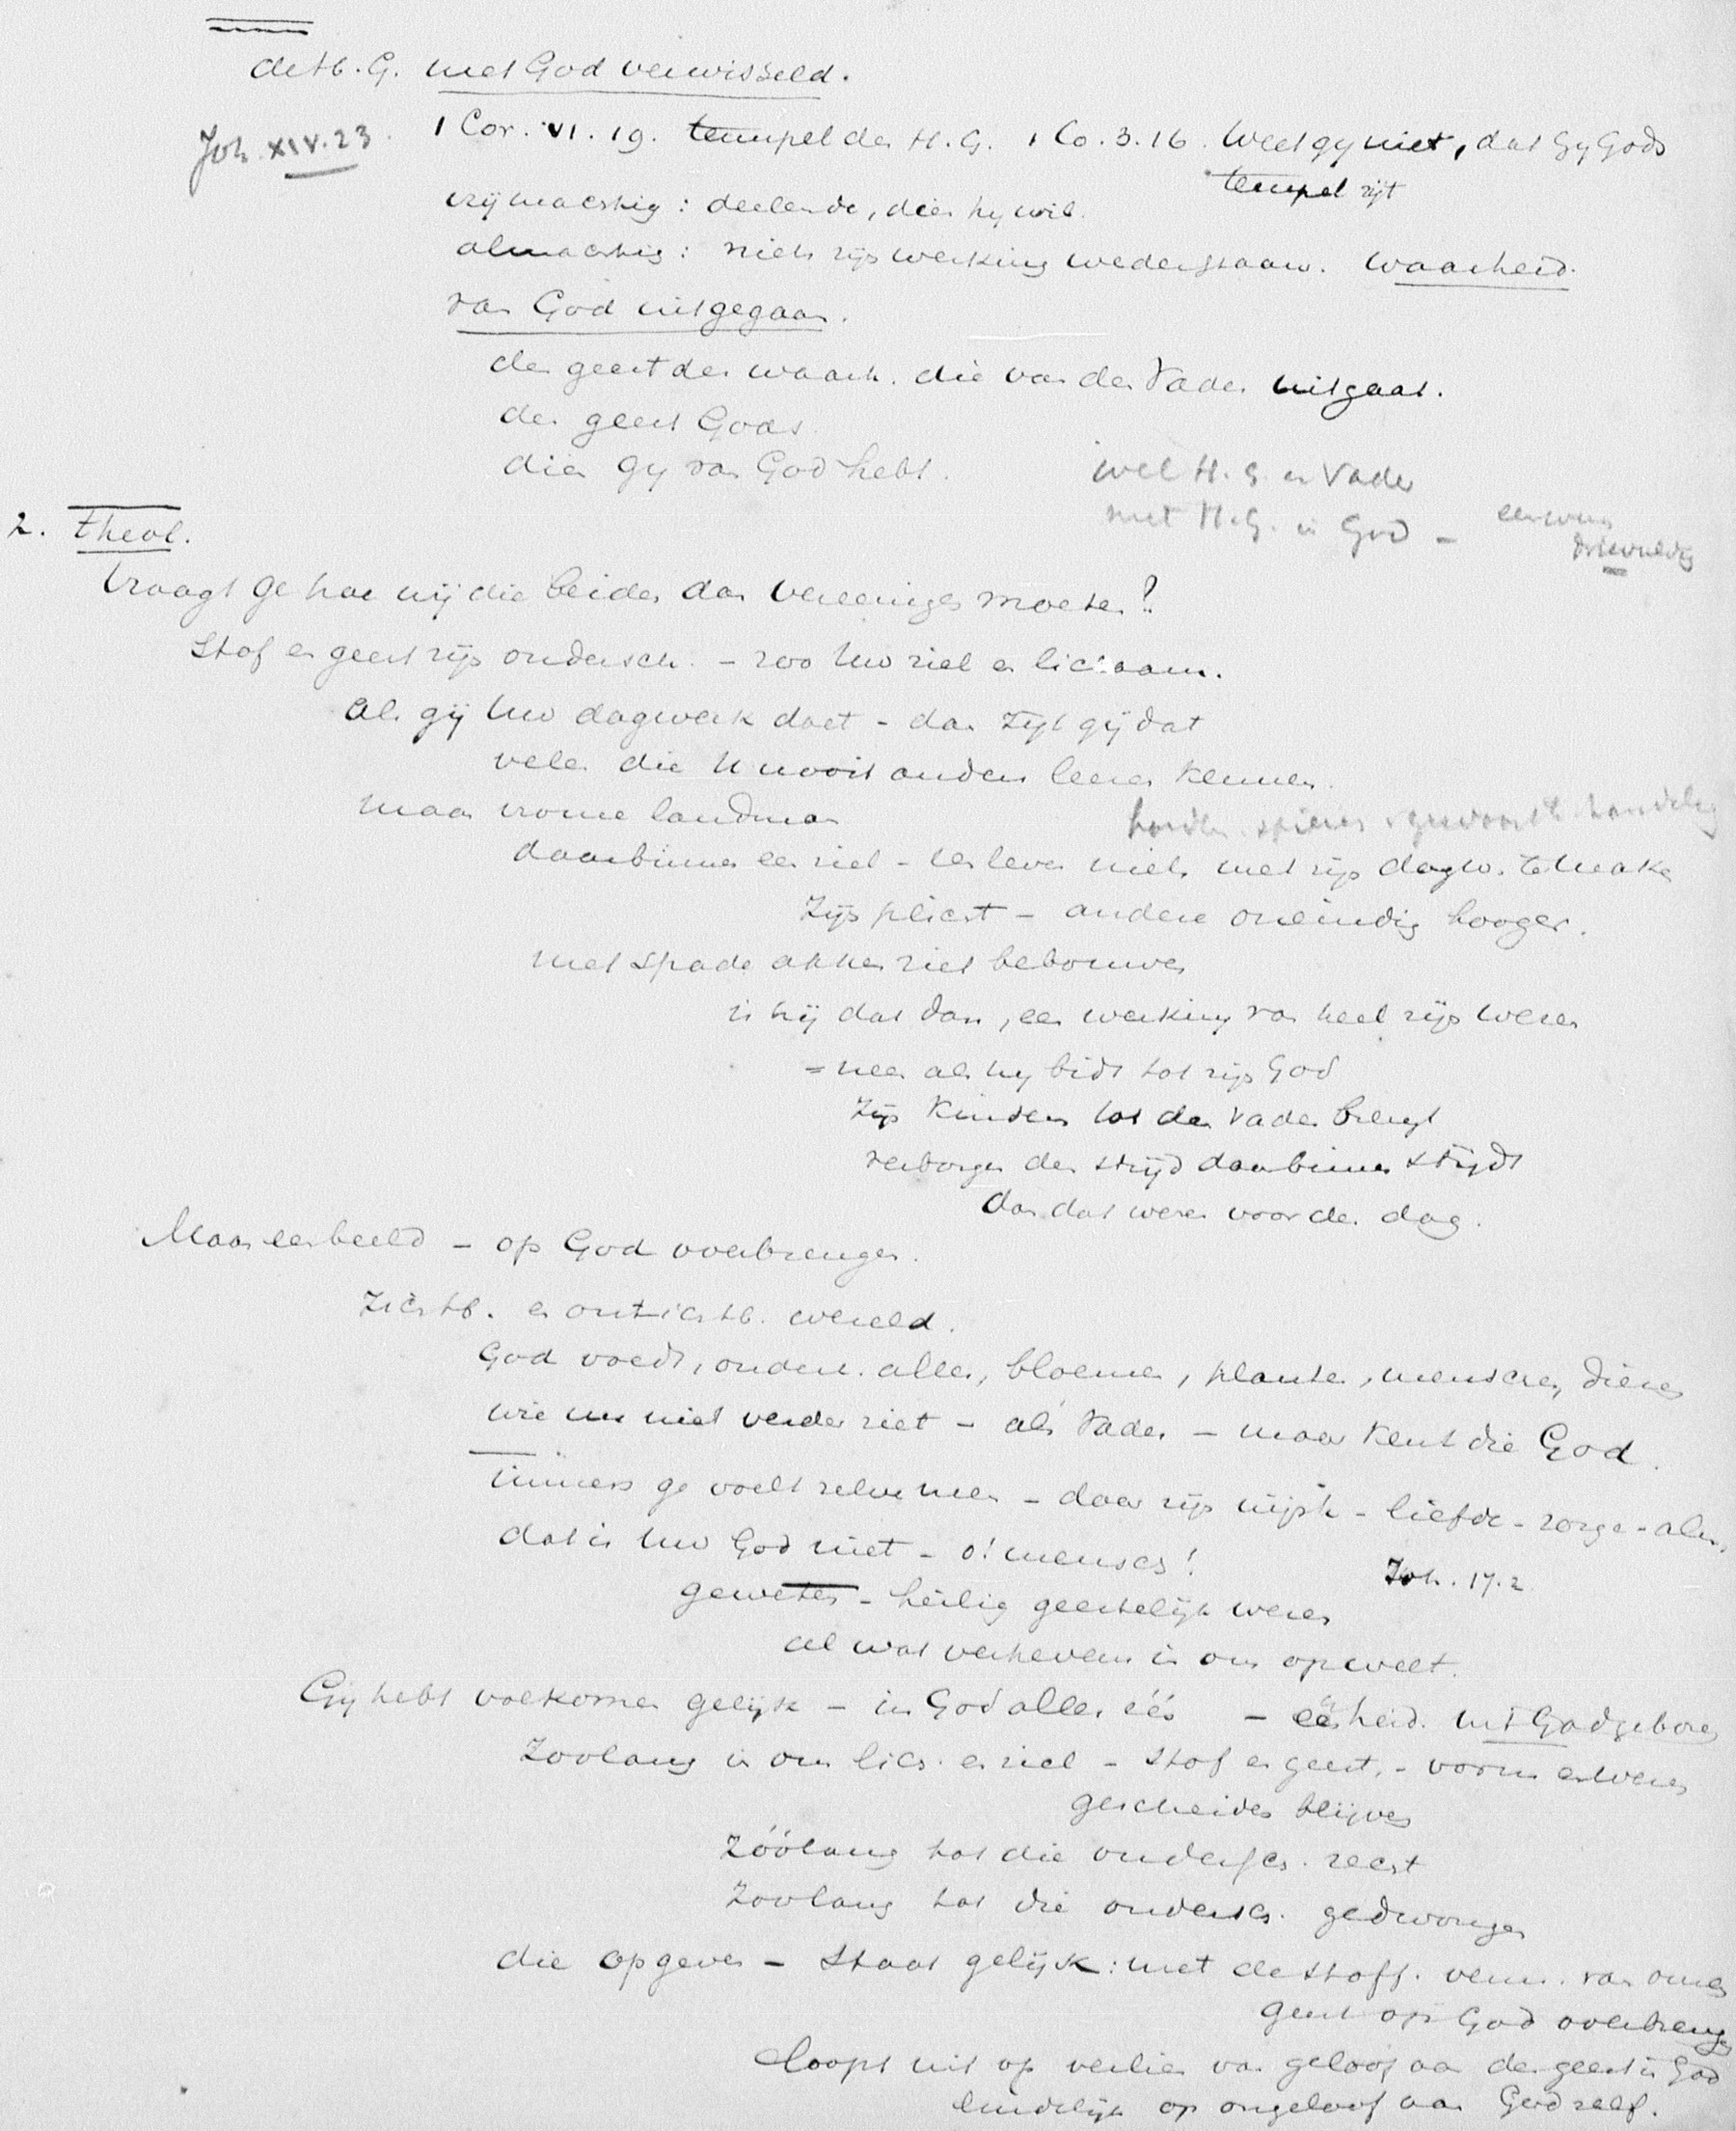 de H. G. met God verwisseld.
Joh. XIV. 23. 1 Cor. VI. 19. tempel der H. G. 1 Co. 3. 16. Weet gy niet, dat gy Gods
tempel zijt
vrijmachtig: deelende, dien hy wil.
almachtig: niets zijn werking wederstaan. Waarheid.
van God uitgegaan.
den geest der waarh. die van den Vader uitgaat.
den geest Gods
dien gy van God hebt.
wel H. G. en Vader
met H. G. en God -
drievuldig
2. Theol.
Vraagt ge hoe wij die beiden dan vereenigen moeten?
Stof en geest zijn ondersch. - zoo Uw ziel en lichaam.
Als gij Uw dagwerk doet - dan zijt gij dat
velen die U nooit anders leeren kennen.
Maar vrome landman
handen spieren gewoonte handeling
daarbinnen een ziel - een leven niets met zijn dagw. te maken
Zijn plicht - andere oneindig hooger.
met spade akker ziel bebouwen
is hij dat dan, een werking van heel zijn wezen
= neen als hy bidt tot zijn God
Zijn kinderen tot den Vader brengt
verborgen den strijd daarbinnen strijdt
dan dat wezen voor den dag.
Maar een beeld - op God overbrengen.
Zichtb. en onzichtb. wereld.
God voedt, onderh. alles, bloemen, planten, menschen, dieren
wie nu niet verder ziet - als Vader - maar kent die God.
Immers ge voelt zelve neen - daar zijn - liefde - zorge - alm.
dat is Uw God niet - o! mensch!
Joh. 17. 2
geweten - heilig geestelijk wezen
al wat verhevens in ons opwelt.
Gij hebt volkomen gelijk - in God alles één - eenheid. uit God geboren
Zoolang in ons lich. en ziel - stof en geest, - vorm en wezen
gescheiden blijven
Zóólang hat die ondersch. recht
Zoolang tot die ondersch. gedwongen
die opgeven - staat gelijk: met de stoff. van onzen
geest op God overbrengen
loopt uit op verlies van geloof aan den geest in God
eindelijk op ongeloof aan God zelf.